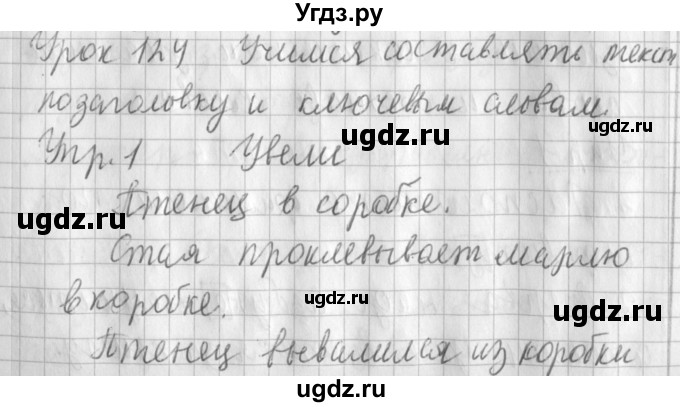 Угдз.ру
Урок 124 Учимся составлять текст
по заголовку и ключевым словам.
ugdz.ru
ugdz.ru
Упр. 1 Увели
ugdz.ru
Птенец в соробке.
ugdz.ru
Стая проклевывает марлю
ugdz.ru
ugdz.ru
в коробке.
Птенец вывалился из коробки
ugdz.ru